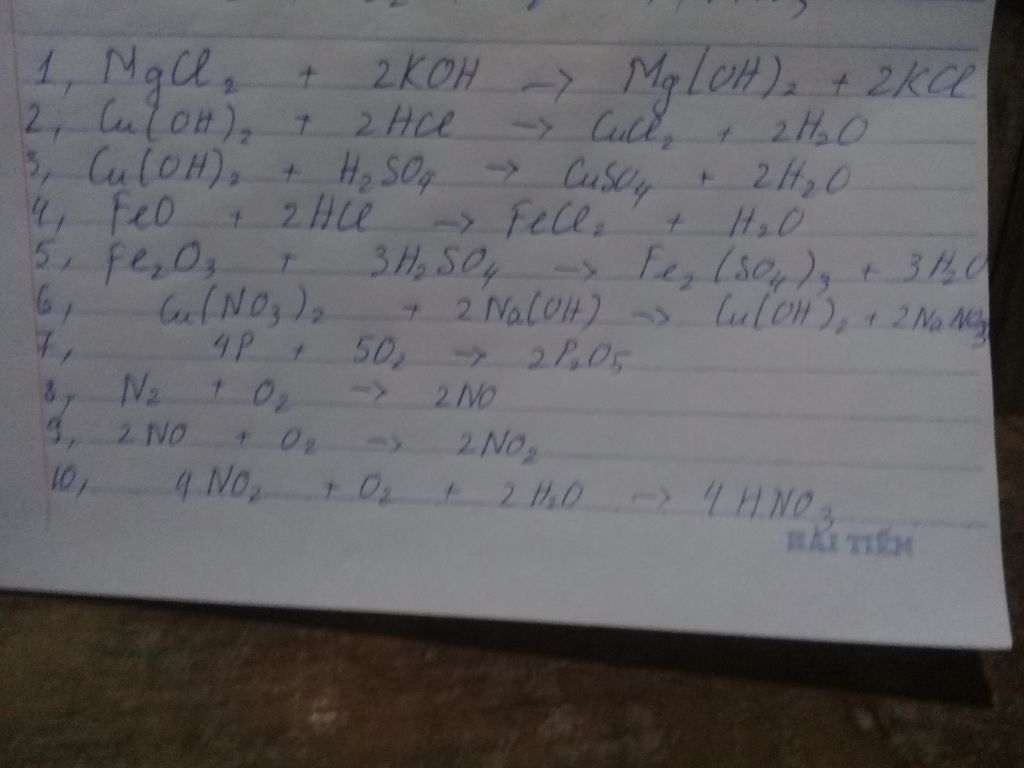 1, MgCl₂ + 2KOH -> Mg(OH)₂ + 2KCl
2, Cu(OH)₂ + 2HCl -> CuCl₂ + 2H₂O
3, Cu(OH)₂ + H₂SO₄ -> CuSO₄ + 2H₂O
4, FeO + 2HCl -> FeCl₂ + H₂O
5, Fe₂O₃ + 3H₂SO₄ -> Fe₂(SO₄)₃ + 3H₂O
6, Cu(NO₃)₂ + 2Na(OH) -> Cu(OH)₂ + 2NaNO₃
7, 4P + 5O₂ -> 2P₂O₅
8, N₂ + O₂ -> 2NO
9, 2NO + O₂ -> 2NO₂
10, 4NO₂ + O₂ + 2H₂O -> 4HNO₃
HẢI TIẾN